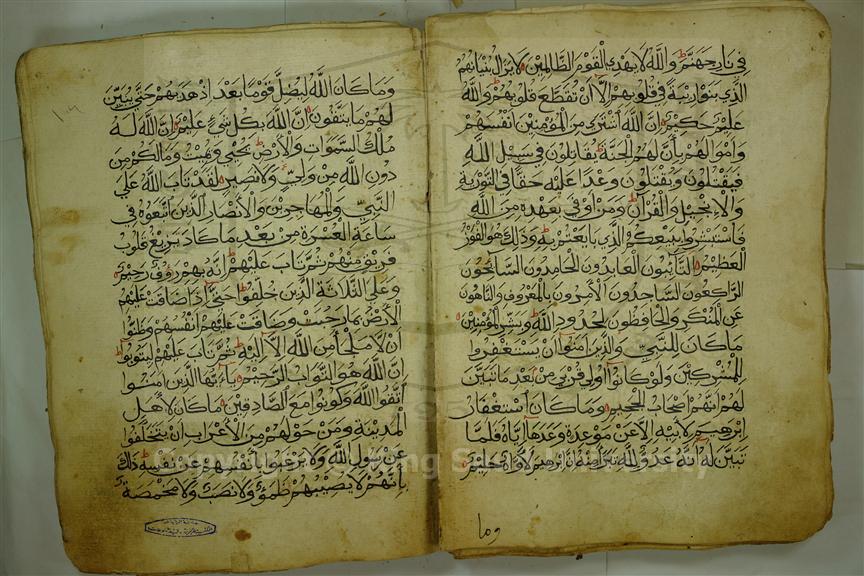 في نار جهنم والله لا يهدي القوم الظالمين لا يزال بنيانهم
الذي بنوا ريبة في قلوبهم إلا أن تقطع قلوبهم والله
عليم حكيم إن الله اشترى من المؤمنين أنفسهم
وأموالهم بأن لهم الجنة يقاتلون في سبيل الله
فيقتلون ويقتلون وعدا عليه حقا في التورية
والإنجيل والقرآن ومن أوفى بعهده من الله
فاستبشروا ببيعكم الذي بايعتم به وذلك هو الفوز
العظيم التائبون العابدون الحامدون السائحون
الراكعون الساجدون الآمرون بالمعروف والناهون
عن المنكر والحافظون لحدود الله وبشر المؤمنين
ما كان للنبي والذين آمنوا أن يستغفروا
للمشركين ولو كانوا أولي قربى من بعد ما تبين
لهم أنهم أصحاب الجحيم وما كان استغفار
إبرهيم لأبيه إلا عن موعدة وعدها إياه فلما
تبين له أنه عدو لله تبرأ منه إن إبرهيم لأواه حليم
وما
وما كان الله ليضل قوما بعد إذ هديهم حتى يبين
لهم ما يتقون إن الله بكل شيء عليم إن الله له
ملك السموات والأرض يحيي ويميت وما لكم من
دون الله من ولي ولا نصير لقد تاب الله على
النبي والمهاجرين والأنصار الذين اتبعوه في
ساعة العسرة من بعد ما كاد يزيغ قلوب
فريق منهم ثم تاب عليهم إنه بهم رؤف رحيم
وعلى الثلاثة الذين خلفوا حتى إذا ضاقت عليهم
الأرض بما رحبت وضاقت عليهم أنفسهم وظنوا
أن لا ملجأ من الله إلا إليه ثم تاب عليهم ليتوبوا
إن الله هو التواب الرحيم يا أيها الذين آمنوا
اتقوا الله وكونوا مع الصادقين ما كان لأهل
المدينة ومن حولهم من الأعراب أن يتخلفوا
عن رسول الله ولا يرغبوا بأنفسهم عن نفسه ذلك
بأنهم لا يصيبهم ظمؤ ولا نصب ولا مخمصة